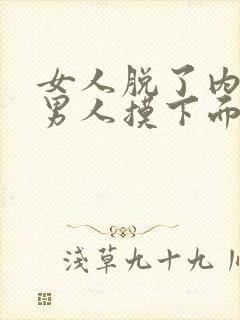 女人脱了内
男人摸下面
浅草九十九